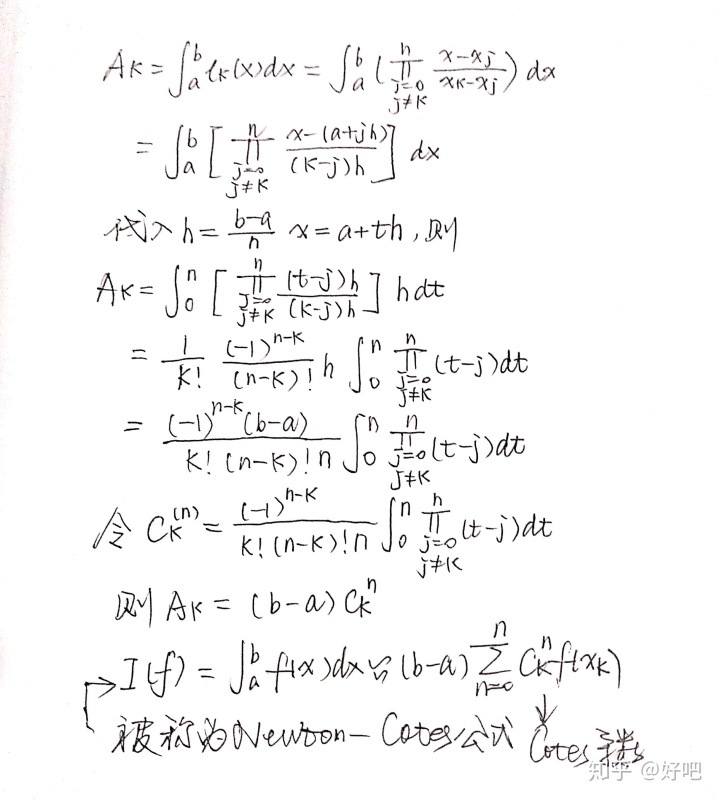 A_K = ∫_a^b l_K(x)dx = ∫_a^b (∏_{j=0, j≠K}^n (x-x_j)/(x_K-x_j)) dx
= ∫_a^b [∏_{j=0, j≠K}^n (x-(a+jh))/((K-j)h)] dx
代入 h = (b-a)/n x = a+th, 则
A_K = ∫_0^n [∏_{j=0, j≠K}^n ((t-j)h)/((K-j)h)] h dt
= 1/K! (-1)^{n-K}/(n-K)! h ∫_0^n ∏_{j=0, j≠K}^n (t-j)dt
= ((-1)^{n-K}(b-a))/(K!(n-K)!n) ∫_0^n ∏_{j=0, j≠K}^n (t-j)dt
令 C_K^{(n)} = (-1)^{n-K}/(K!(n-K)!n) ∫_0^n ∏_{j=0, j≠K}^n (t-j)dt
则 A_K = (b-a)C_K^n
I(f) = ∫_a^b f(x)dx ≈ (b-a)∑_{n=0}^n C_K^n f(x_K)
被称为Newton-Cotes公式 Cotes系数
知乎 @好吧